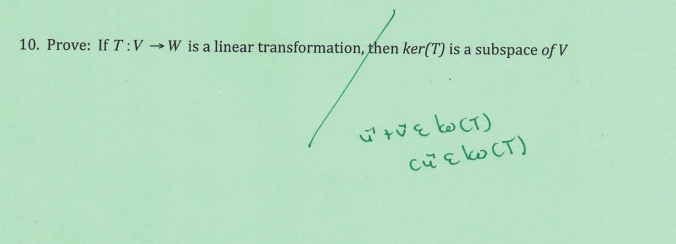 10. Prove: If T : V → W is a linear transformation, then ker(T) is a subspace of V
u⃗ + v⃗ ε ker(T)
cu⃗ ε ker(T)